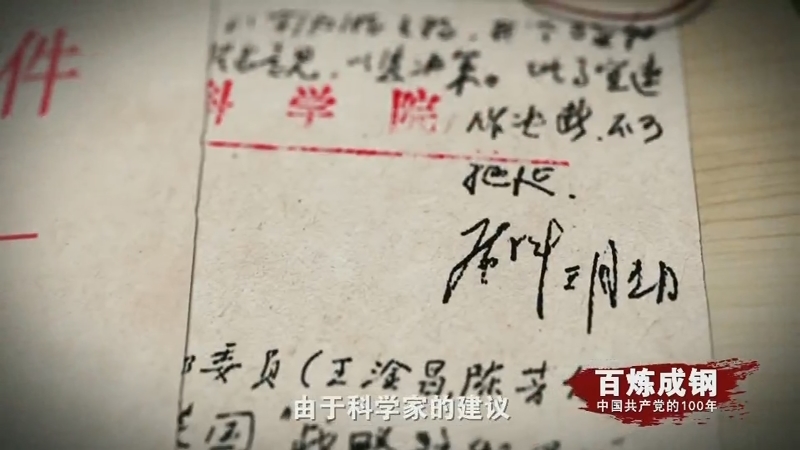 件
意见,以凭决策。此事宜速
科学院
作决断,不可
拖延.
三月五日
委员(王淦昌,陈芳
国"战略
由于科学家的建议
百炼成钢
中国共产党的100年